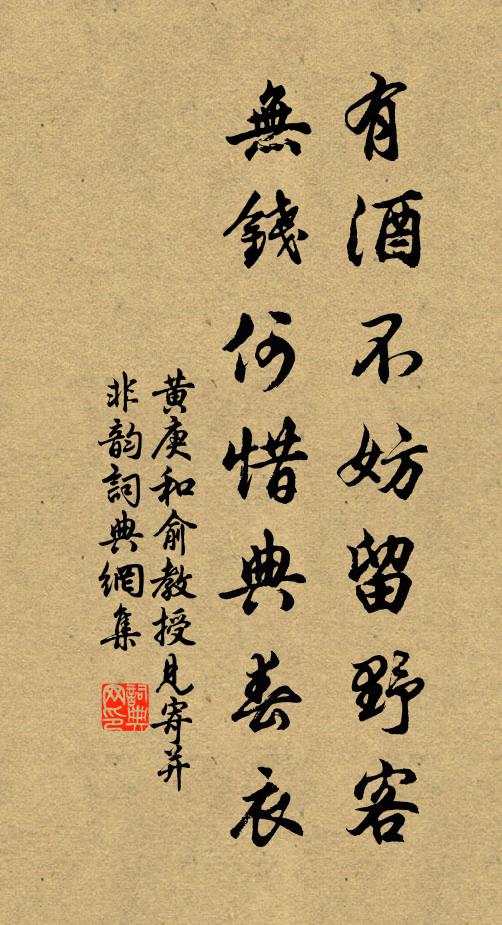 有酒不妨留野客
無錢何惜典春衣
黄庚和俞教授見寄并
非韵詞典網集
詞典网印